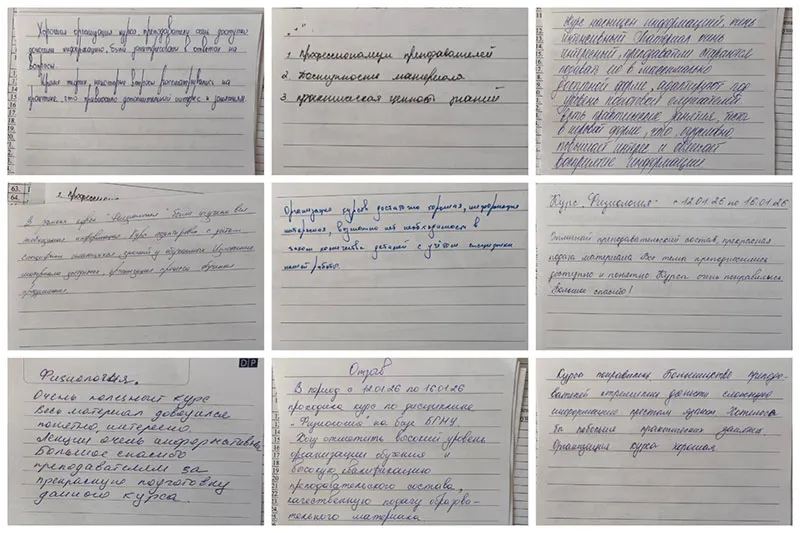 Хорошая организация курса, преподаватели очень доступно
доносили информацию, были заинтересованы в ответах на
вопросы.
Кроме того, некоторые вопросы рассматривались на
практике, что привносило дополнительный интерес к занятиям
"+"
1. Профессионализм преподавателей
2. Доступность материала
3. практическая ценность знаний
Курс насыщен информацией, очень
интенсивный. Материал очень
интересный, преподаватели стараются
подавать ее в максимально
доступной форме, адаптируют под
уровень подготовки слушателей.
Есть практические занятия, также
в игровой форме, что, безусловно,
повышает интерес и облегчает
восприятие информации
63.
64.
1. Професси
В рамках курса "Физиология" были отражены все
информация курса с учетом
специфики у обучаемых. Изложение
материала доступное, организация процесса обучения
Организация курсов достаточно хорошая, информация
интересная, но необходимости в
таком количестве деталей с учётом специфики
нашей работы.
Курс "Физиология" с 12.01.26 по 16.01.26
Отличный преподавательский состав, прекрасная
подача материала. Все темы преподносились
доступно и понятно. Курсы очень понравились.
Большое спасибо!
DP
Физиология.
Очень полезный курс
Весь материал доводился
понятно, интересно.
Лекции очень информативны
Большое спасибо
преподавателям за
прекрасную подготовку
данного курса.
Отзыв
В период с 12.01.26 по 16.01.26
проходила курс по дисциплине
"Физиология" на базе БГМУ.
Хочу отметить высокий уровень
организации обучения и
высокую квалификацию
преподавательского состава,
качественную подачу образова-
тельного материала
Курсы понравились. Большинство препода-
вателей стремились донести сложную
информацию простым языком. Хотелось
бы побольше практических занятий.
Организация курса хорошая.